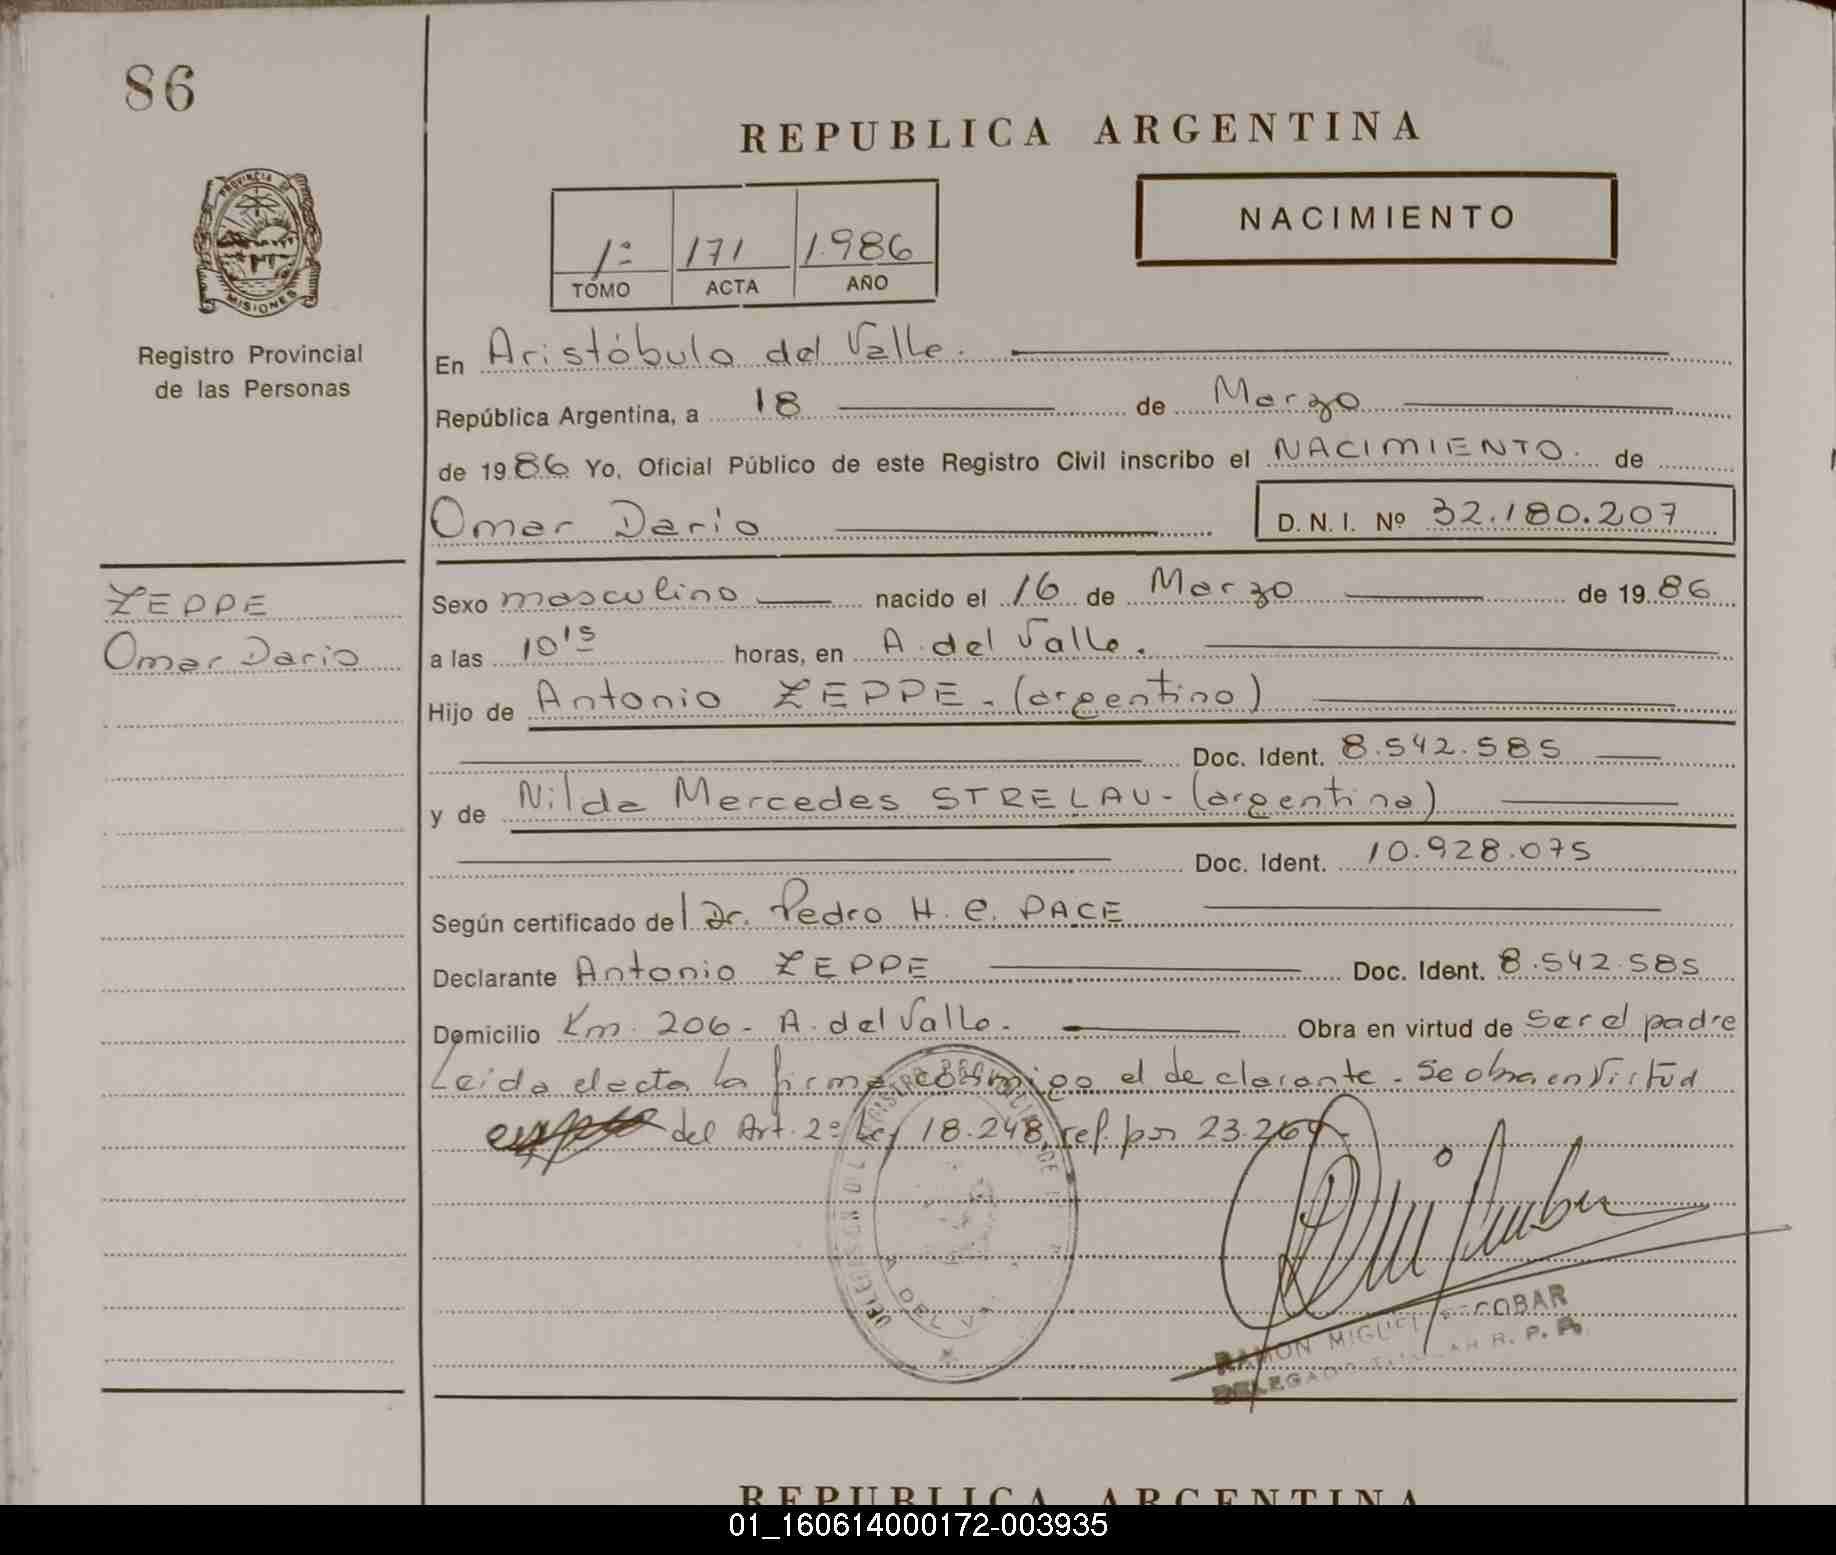 86
REPUBLICA ARGENTINA
PROVINCIA DE
MISIONES
Registro Provincial
de las Personas
NACIMIENTO
1º 171 1.986
TOMO ACTA AÑO
En Aristóbulo del Valle.
República Argentina, a 18 de Marzo
de 1986 Yo, Oficial Público de este Registro Civil inscribo el NACIMIENTO. de
Omar Dario D.N.I. Nº 32.180.207
ZEPPE
Omar Dario
Sexo masculino nacido el 16 de Marzo de 1986
a las 10'15 horas, en A. del Valle.
Hijo de Antonio ZEPPE - (argentino)
Doc. Ident. 8.542.585
y de Nilda Mercedes STRELAU - (argentina)
Doc. Ident. 10.928.075
Según certificado del Dr. Pedro H. C. PACE
Declarante Antonio ZEPPE Doc. Ident. 8.542.585
Domicilio Km. 206 - A. del Valle. Obra en virtud de Ser el padre
Leida el acta la firma conmigo el declarante - Se obra en Virtud
del Art. 2º Ley 18.248, ref. por 23.264-
RAMON MIGUEL ESCOBAR
DELEGADO TITULAR R. P. P.
REPUBLICA ARGENTINA
01_160614000172-003935